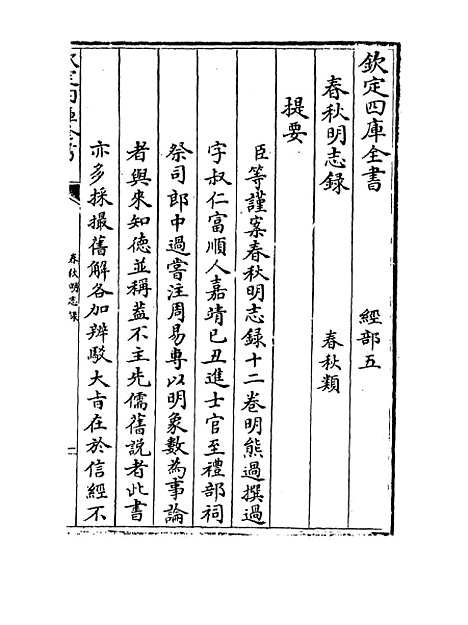 欽定四庫全書
經部五
春秋明志錄
春秋類
提要
臣等謹案春秋明志錄十二卷明熊過撰過
字叔仁富順人嘉靖已丑進士官至禮部祠
祭司郎中過嘗注周易專以明象數為事論
者與來知德並稱蓋不主先儒舊說者此書
亦多採撮舊解各加辨駁大旨在於信經不
春秋明志錄